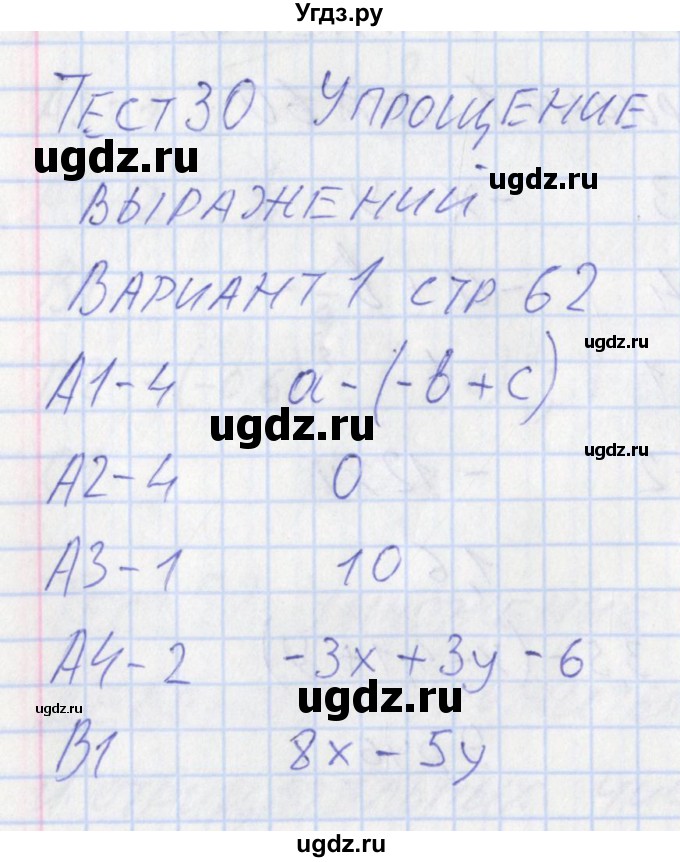 Угдз.ру
ТЕСТ 30 УПРОЩЕНИЕ
ugdz.ru
ugdz.ru
ВЫРАЖЕНИЙ
ВАРИАНТ 1 СТР 62
ugdz.ru
А1-4 a-(-b+c)
ugdz.ru
ugdz.ru
А2-4 0
А3-1 10
А4-2 -3x+3y-6
ugdz.ru
ugdz.ru
В1 8x-5y
ugdz.ru
ugdz.ru